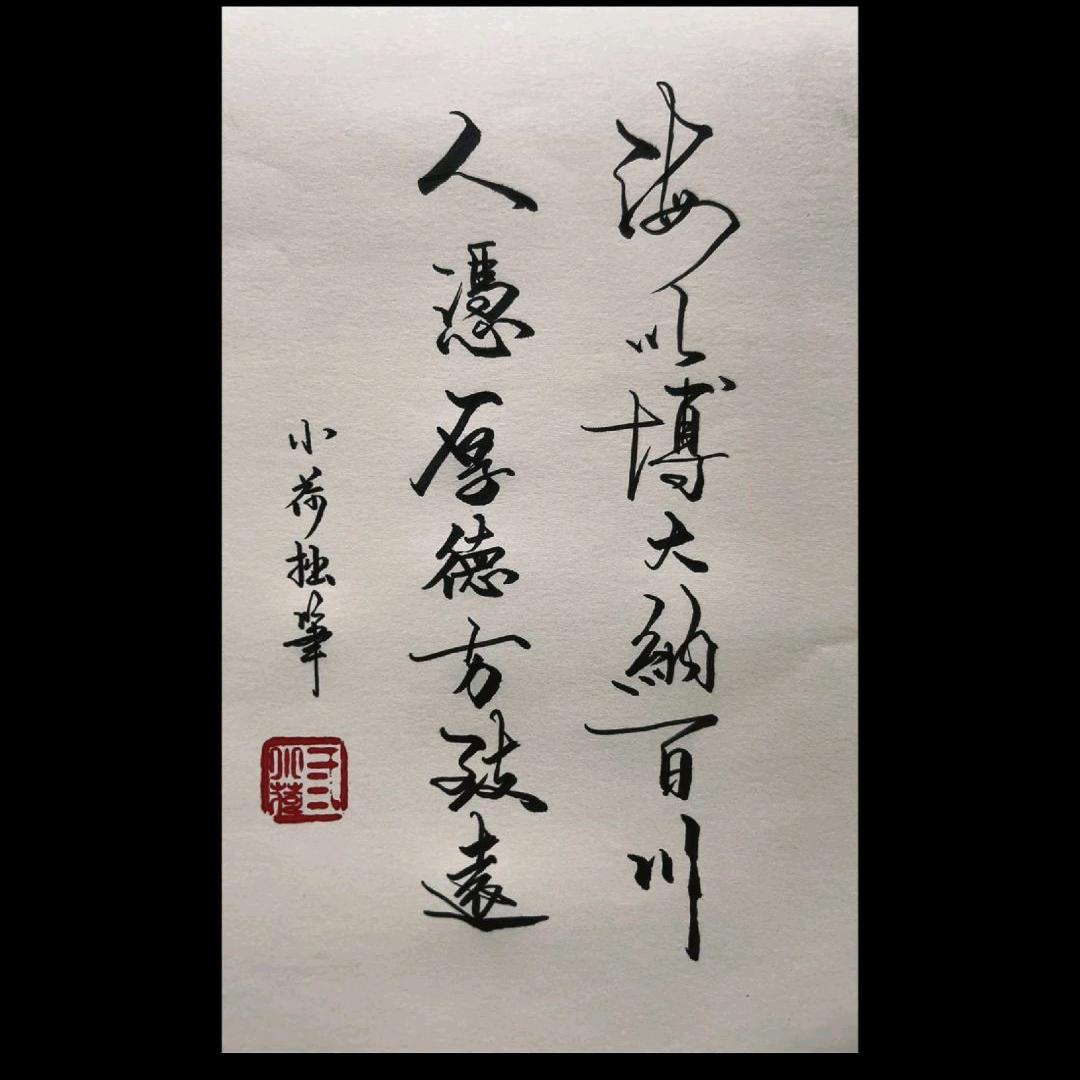 海以博大納百川
人憑厚德方致遠
小荷拙筆